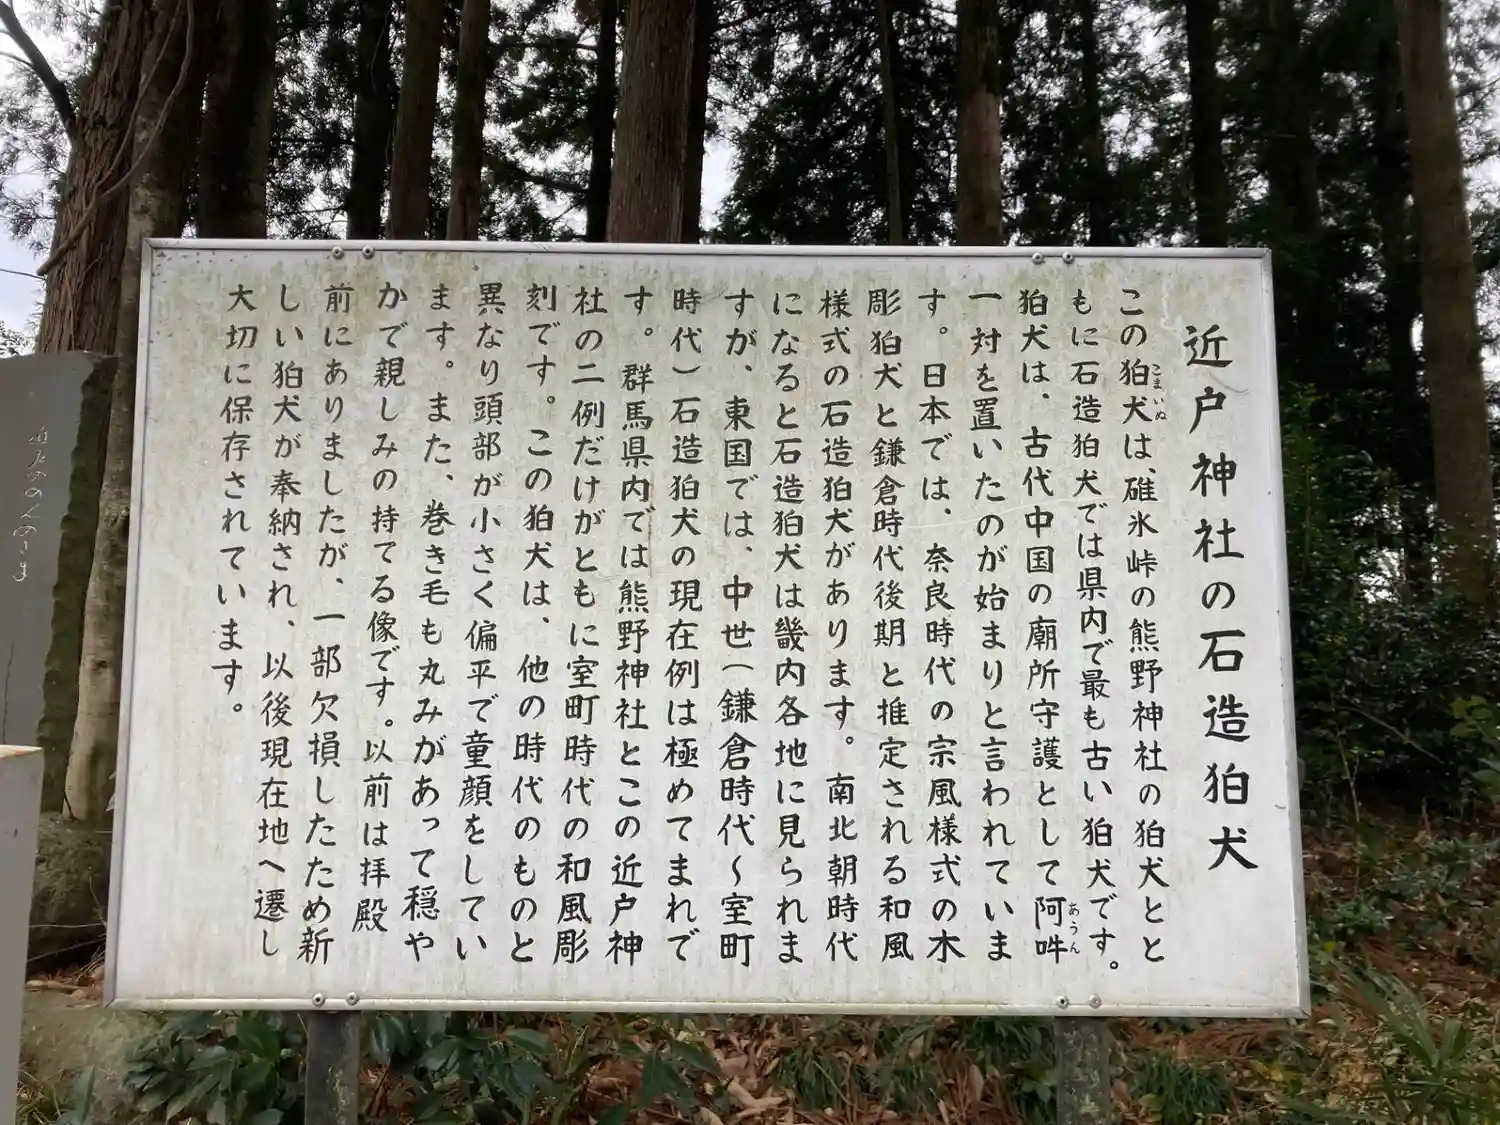 近戸神社の石造狛犬
この狛犬は、碓氷峠の熊野神社の狛犬とと
こまいぬ
もに石造狛犬では県内で最も古い狛犬です。
狛犬は、古代中国の廟所守護として阿吽
あうん
一対を置いたのが始まりと言われていま
す。日本では、奈良時代の宗風様式の木
彫狛犬と鎌倉時代後期と推定される和風
様式の石造狛犬があります。南北朝時代
になると石造狛犬は畿内各地に見られま
すが、東国では、中世(鎌倉時代〜室町
時代)石造狛犬の現在例は極めてまれで
す。群馬県内では熊野神社とこの近戸神
社の二例だけがともに室町時代の和風彫
刻です。この狛犬は、他の時代のものと
異なり頭部が小さく偏平で童顔をしてい
ます。また、巻き毛も丸みがあって穏や
かで親しみの持てる像です。以前は拝殿
前にありましたが、一部欠損したため新
しい狛犬が奉納され、以後現在地へ遷し
大切に保存されています。